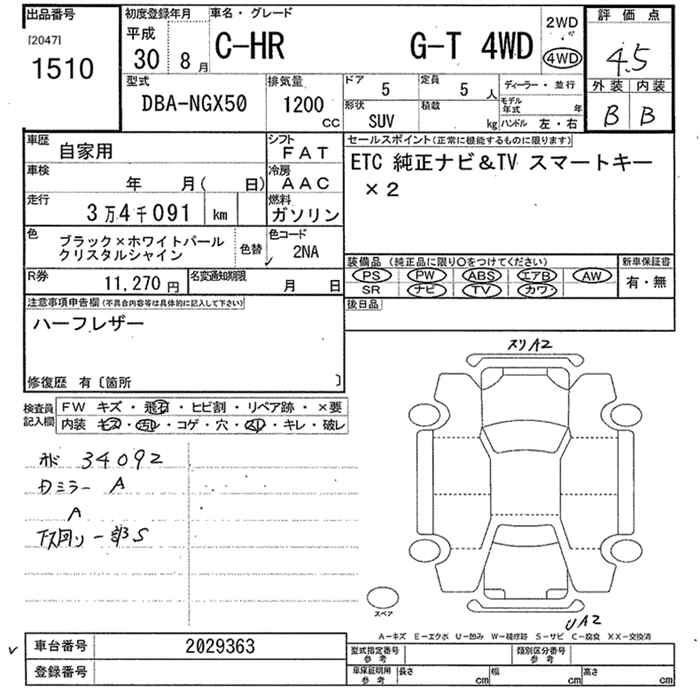 出品番号
[2047]
1510
初度登録年月
平成
30
8月
車名・グレード
C-HR G-T 4WD
2WD
4WD
評価点
4.5
外装 内装
B B
型式
DBA-NGX50
排気量
1200
cc
ドア
5
定員
5人
形状
SUV
積載
kg
ディーラー・並行
モデル年式 年
ハンドル 左・右
車歴
自家用
シフト
FAT
車検
年 月( 日)
冷房
AAC
走行
3万4千091 km
燃料
ガソリン
色
ブラック×ホワイトパール
クリスタルシャイン
色替
色コード
2NA
R券
11,270円
名変通知期限
月 日
セールスポイント(正常に機能するものに限ります)
ETC 純正ナビ&TV スマートキー
×2
装備品 (純正品に限り〇をつけてください)
PS PW ABS エアB AW
SR ナビ TV カワ
新車保証書
有・無
後日品
注意事項申告欄(不具合内容等は具体的に記入して下さい)
ハーフレザー
修復歴 有〔箇所 〕
検査員
記入欄
FW キズ・飛石・ヒビ割・リペア跡・×要
内装 キズ・汚レ・コゲ・穴・スレ・キレ・破レ
34092
ミラー A
A
下回り一部S
スリA2
スペア
UA2
A-キズ E-エクボ U-凹み W-補修跡 S-サビ C-腐食 XX-交換済
v
車台番号
2029363
登録番号
型式指定番号
参考
類別区分番号
参考
車庫証明用
参考
長さ cm
幅 cm
高さ cm